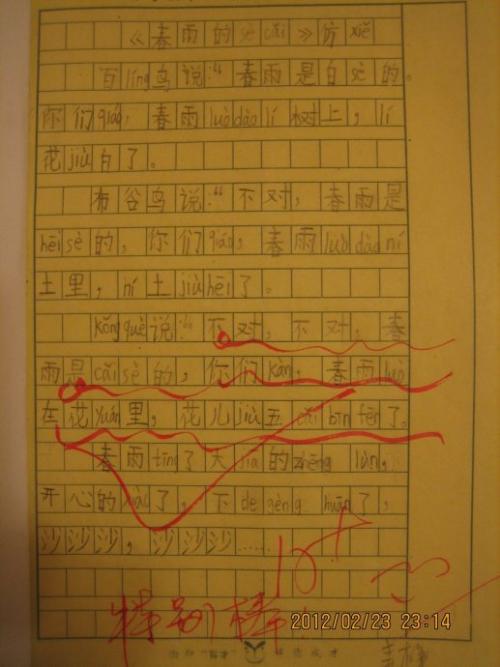 《春雨的sè cǎi》仿xiě
百líng鸟说:“春雨是白sè的。
你们qiáo,春雨luò dào lí树上,lí
花jiù白了。
布谷鸟说:“不对,春雨是
hēi sè的,你们qiáo,春雨luò dào ní
土里,ní土jiù hēi了。
kǒng què说:“不对,不对,春
雨是cǎi sè的,你们kàn,春雨luò
在花yuán里,花儿jiù五cǎi bīn fēn了。
春雨tīng了大jiā的zhēng lùn,
开心的xiào了,下de gèng huān了,
沙沙沙,沙沙沙……
10+
特别棒!
2012/02/23 23:14